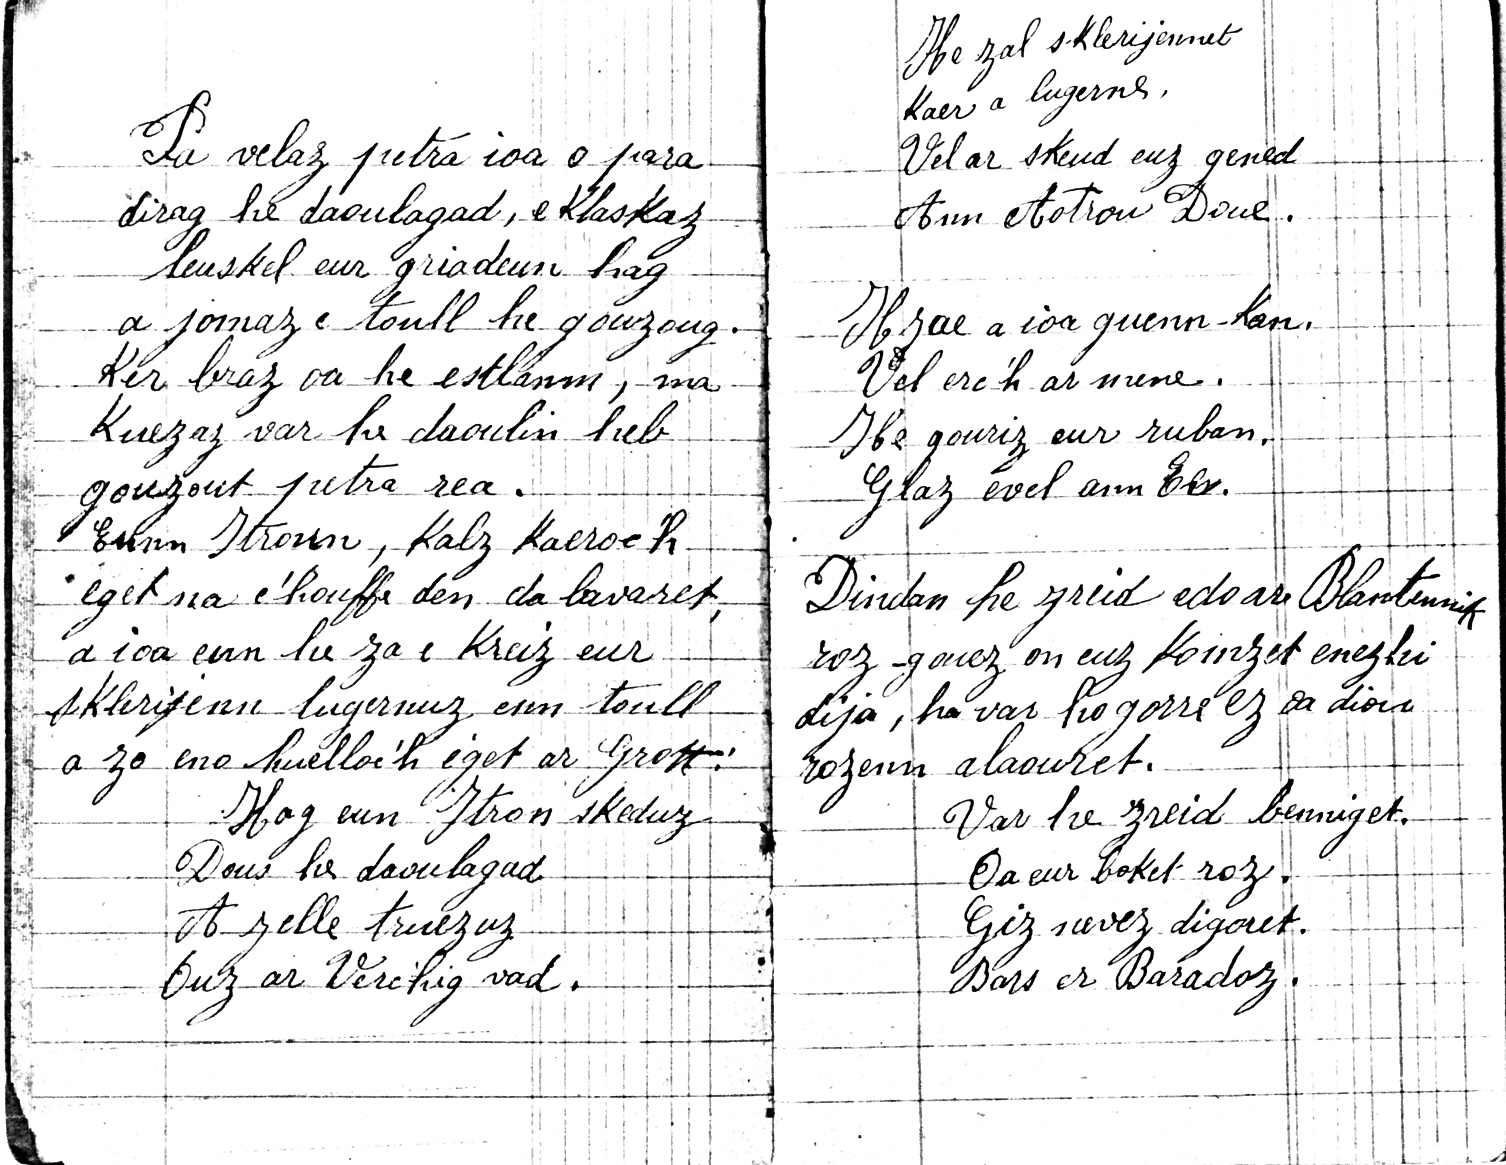 Pa velaz petra ioa o para
dirag he daoulagad, e klaskaz
leuskel eur griadeun hag
a jomaz e toull he gouzoug.
Ker braz oa he estlamm, ma
kuezaz var he daoulin heb
gouzout petra rea.
Eunn Itroun, kalz kaeroc'h
eget na c'houffe den da lavaret,
a ioa enn he za e kreiz eur
sklerijenn lugernuz enn toull
a zo eno huelloc'h eget ar Grott:
Hag eun Itron skeduz
Dous he daoulagad
A zelle truezuz
Ouz ar Verc'hig vad.
He zal sklerijennet
Kaer a lugerne,
Vel ar skeud euz gened
Ann Aotrou Doue.
He zae a ioa guenn-kan.
Vel erc'h ar mene.
He gouriz eur ruban.
Glaz evel ann Eev.
Dindan he zreid edo ar Blantennik
roz-gouez on euz komzet enezhi
dija, ha var ho gorre ez oa diou
rozenn alaouret.
Var he zreid benniget.
Oa eur boket roz.
Giz nevez digoret.
Bars er Baradoz.